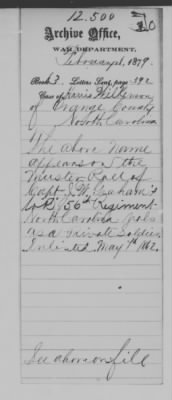 12.500
Archive Office,
WAR DEPARTMENT,
February 1, 1879.
Book 3. Letters Sent, page 392
Case of Harris Wilkerson
of Orange County
North Carolina
The above name
appears on the
Muster Roll of
Capt J. W. Graham's
Co D, 56th Regiment
North Carolina Vols
as a private Soldier
Enlisted May 1st 1862.
See above on file